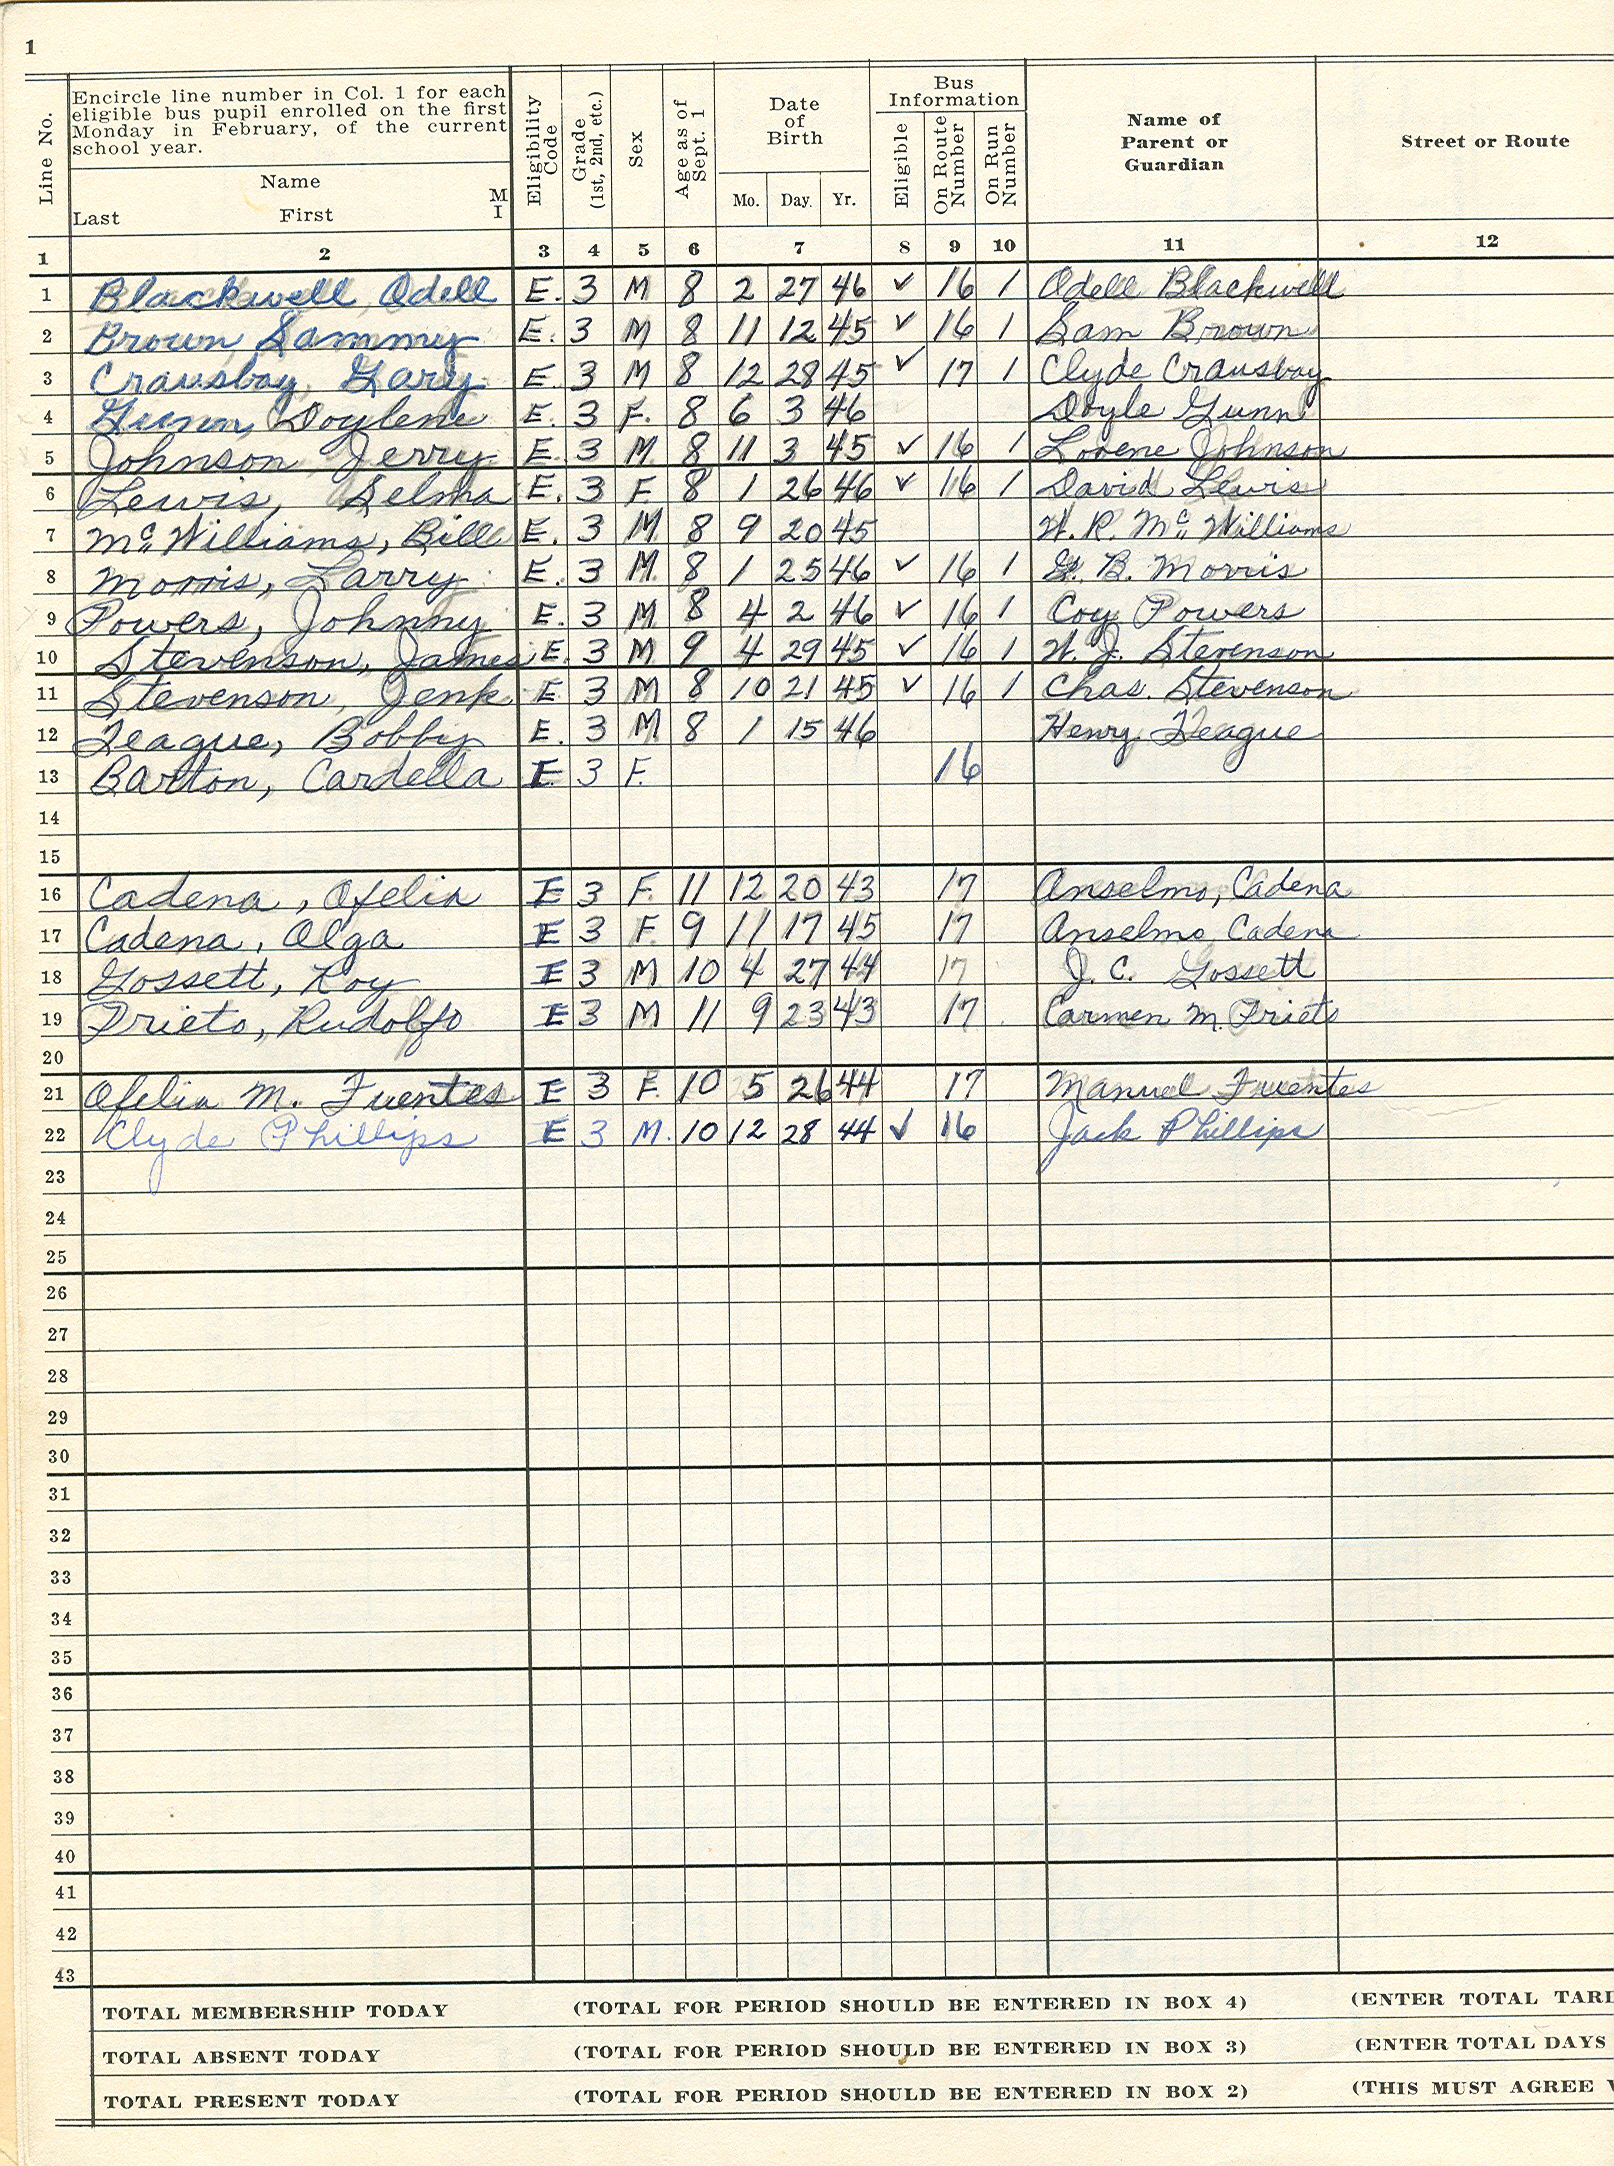 1
Line No.
Encircle line number in Col. 1 for each
eligible bus pupil enrolled on the first
Monday in February, of the current
school year.
Name
Last First M I
Eligibility Code
Grade (1st, 2nd, etc.)
Sex
Age as of Sept. 1
Date of Birth
Mo. Day. Yr.
Bus Information
Eligible
On Route Number
On Run Number
Name of Parent or Guardian
Street or Route
1 2 3 4 5 6 7 8 9 10 11 12
1 Blackwell, Odell E. 3 M 8 2 27 46 ✓ 16 1 Odell Blackwell
2 Brown, Sammy E. 3 M 8 11 12 45 ✓ 16 1 Sam Brown
3 Crausbay, Gary E. 3 M 8 12 28 45 ✓ 17 1 Clyde Crausbay
4 Gunn, Doylene E. 3 F. 8 6 3 46 Doyle Gunn
5 Johnson, Jerry E. 3 M. 8 11 3 45 ✓ 16 1 Lorene Johnson
6 Lewis, Selma E. 3 F. 8 1 26 46 ✓ 16 1 David Lewis
7 Mc Williams, Bill E. 3 M. 8 9 20 45 W. R. Mc Williams
8 Morris, Larry E. 3 M. 8 1 25 46 ✓ 16 1 B. Morris
9 Powers, Johnny E. 3 M 8 4 2 46 ✓ 16 1 Coy Powers
10 Stevenson, James E. 3 M 9 4 29 45 ✓ 16 1 W. J. Stevenson
11 Stevenson, Jenk E. 3 M 8 10 21 45 ✓ 16 1 Chas. Stevenson
12 Teague, Bobby E. 3 M. 8 1 15 46 Henry Teague
13 Barton, Cardella E 3 F. 16
14
15
16 Cadena, Ofelia E 3 F. 11 12 20 43 17 Anselmo, Cadena
17 Cadena, Olga E 3 F. 9 11 17 45 17 Anselmo Cadena
18 Gossett, Roy E 3 M. 10 4 27 44 17 J. C. Gossett
19 Prieto, Rudolfo E 3 M 11 9 23 43 17 Carmen M. Prieto
20
21 Ofelia M. Fuentes E 3 F. 10 5 26 44 17 Manuel Fuentes
22 Clyde Phillips E 3 M. 10 12 28 44 ✓ 16 Jack Phillips
23
24
25
26
27
28
29
30
31
32
33
34
35
36
37
38
39
40
41
42
43
TOTAL MEMBERSHIP TODAY (TOTAL FOR PERIOD SHOULD BE ENTERED IN BOX 4) (ENTER TOTAL TARD
TOTAL ABSENT TODAY (TOTAL FOR PERIOD SHOULD BE ENTERED IN BOX 3) (ENTER TOTAL DAYS
TOTAL PRESENT TODAY (TOTAL FOR PERIOD SHOULD BE ENTERED IN BOX 2) (THIS MUST AGREE